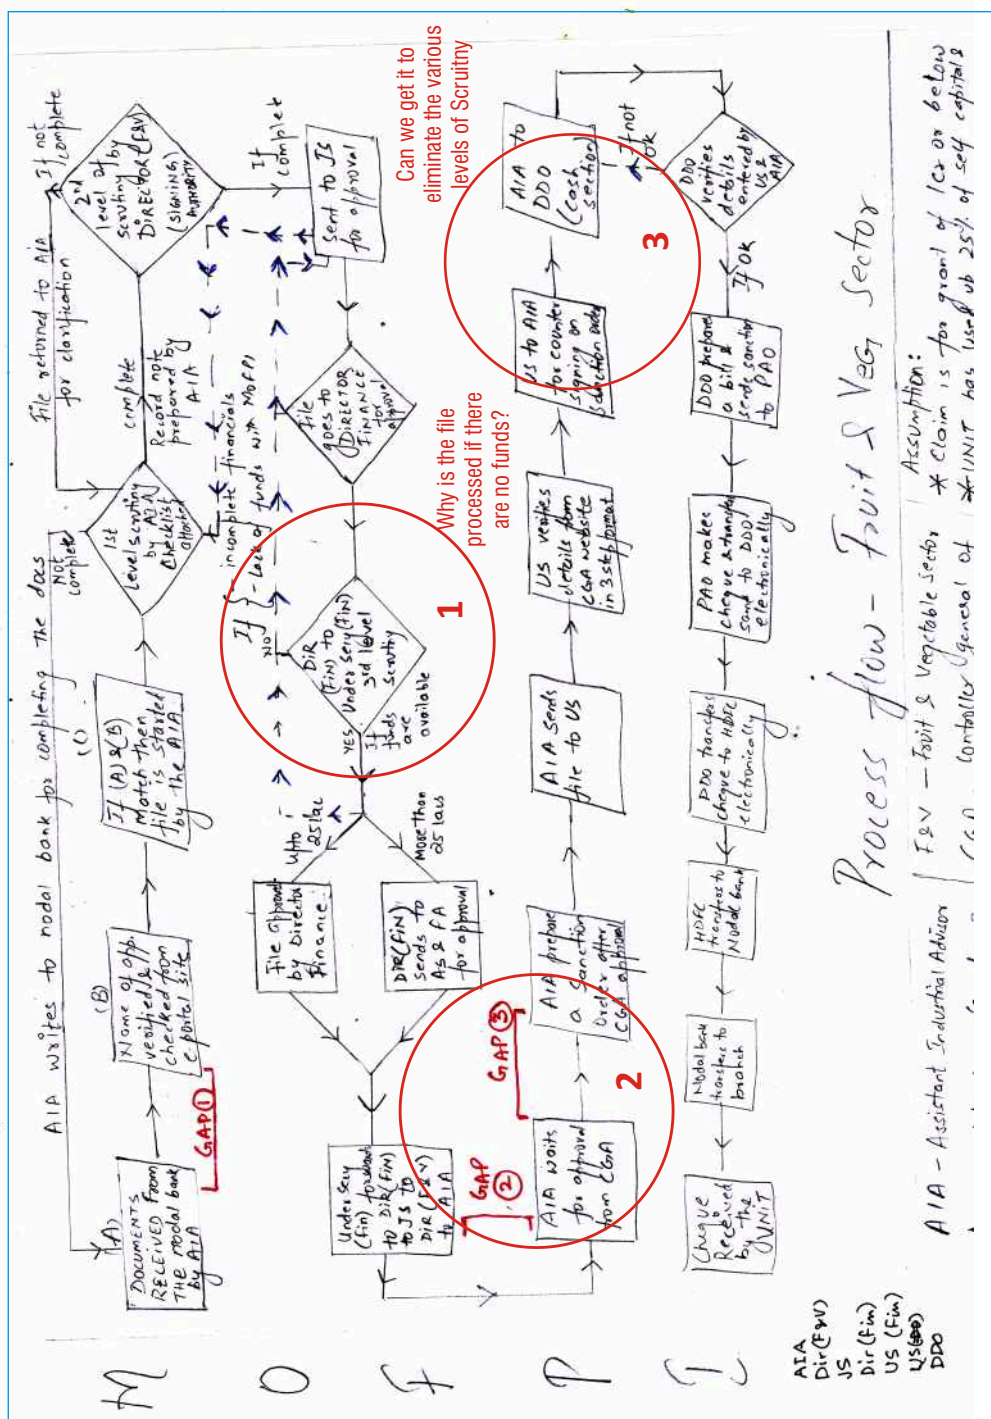 AIA writes to nodal bank for completing the docs
File returned to AIA
for clarification
M
(A)
DOCUMENTS
RECEIVED FROM
THE nodal bank
by AIA
GAP ①
(B)
Name of app.
verified &
checked from
e-portal site
(C)
If (A) & (B)
Match then
file is started
by the AIA
Not
complete
1st
Level scrutiny
by AIA
Checklist
attached
complete
Record note
prepared by
AIA
2nd
level of
scrutiny by
DIRECTOR (F&V)
(SIGNING
AUTHORITY)
If not
complete
If
complete
O
If
- incomplete financials
- Lack of funds with MOFPI
Sent to JS
for approval
File
goes to
DIRECTOR
FINANCE
for
approval
F
DIR
(FIN) to
Under secy (FIN)
3rd level
scrutiny
NO
YES
If
funds
are
available
1
Why is the file
processed if there
are no funds?
Upto
25 lac
More than
25 lacs
File approved
by Director
Finance
DIR (FIN)
sends to
AS & FA
for approval
Under secy
(fin) forwards
to Dir (FIN)
to JS to
DIR (F&V)
to AIA
GAP
②
P
AIA waits
for approval
from CGA
2
GAP ③
AIA prepare
a sanction
order after
CGA approval
AIA sends
file to US
US verifies
details from
CGA website
in 3 step format
US to AIA
for counter
signing on
sanction order
AIA to
DDO
(cash
section)
3
Can we get it to
eliminate the various
levels of Scruitny
If not
OK
DDO
verifies
details
entered by
US &
AIA
If OK
DDO prepare
a bill &
sends sanction
to PAO
PAO makes
cheque & transfer
same to DDO
electronically
DDO transfers
cheque to HDFC
electronically
HDFC
transfers to
Nodal bank
Nodal bank
transfers to
branch
Cheque
Received
by the
UNIT
Process flow - Fruit & Veg sector
AIA - Assistant Industrial Advisor
F&V - Fruit & Vegetable Sector
Controller general of
Assumption:
* Claim is for grant of 1cr or below
* UNIT has used up 25% of self capital &
AIA
Dir (F&V)
JS
Dir (Fin)
US (Fin)
DDO